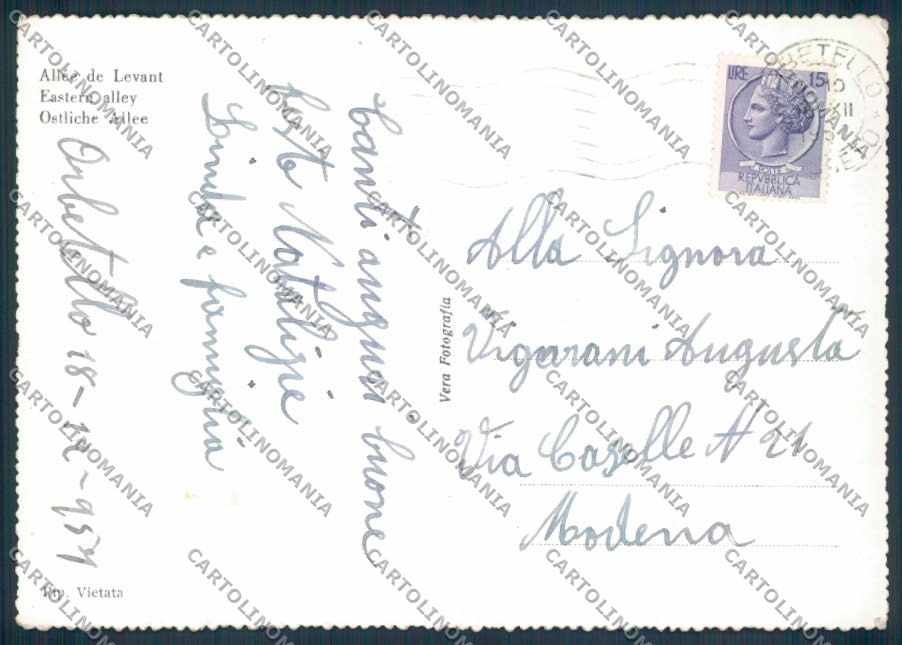 Allée de Levant
Eastern alley
Ostliche Allee
Orbetello 18-12-957
Tanti auguri buone
feste Natalizie
Linda e famiglia
Vera Fotografia
Rip. Vietata
LIRE 15
POSTE
REPVBBLICA
ITALIANA
Alla Signora
Vigarani Augusta
Via Caselle N 21
Modena
CARTOLINOMANIA